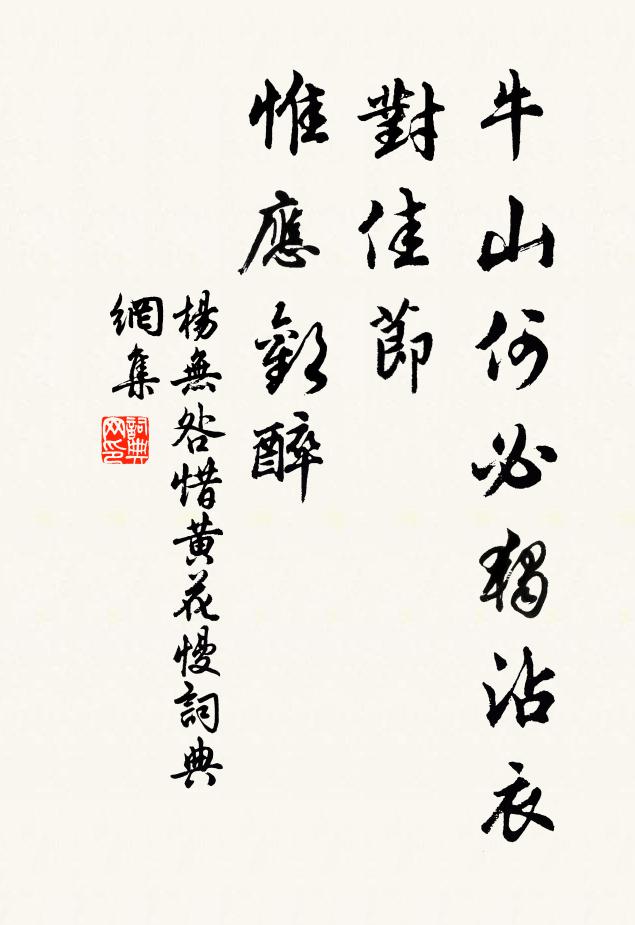 牛山何必獨沾衣
對佳節
惟應歡醉
楊無咎惜黃花慢詞典
網集
詞典
网印